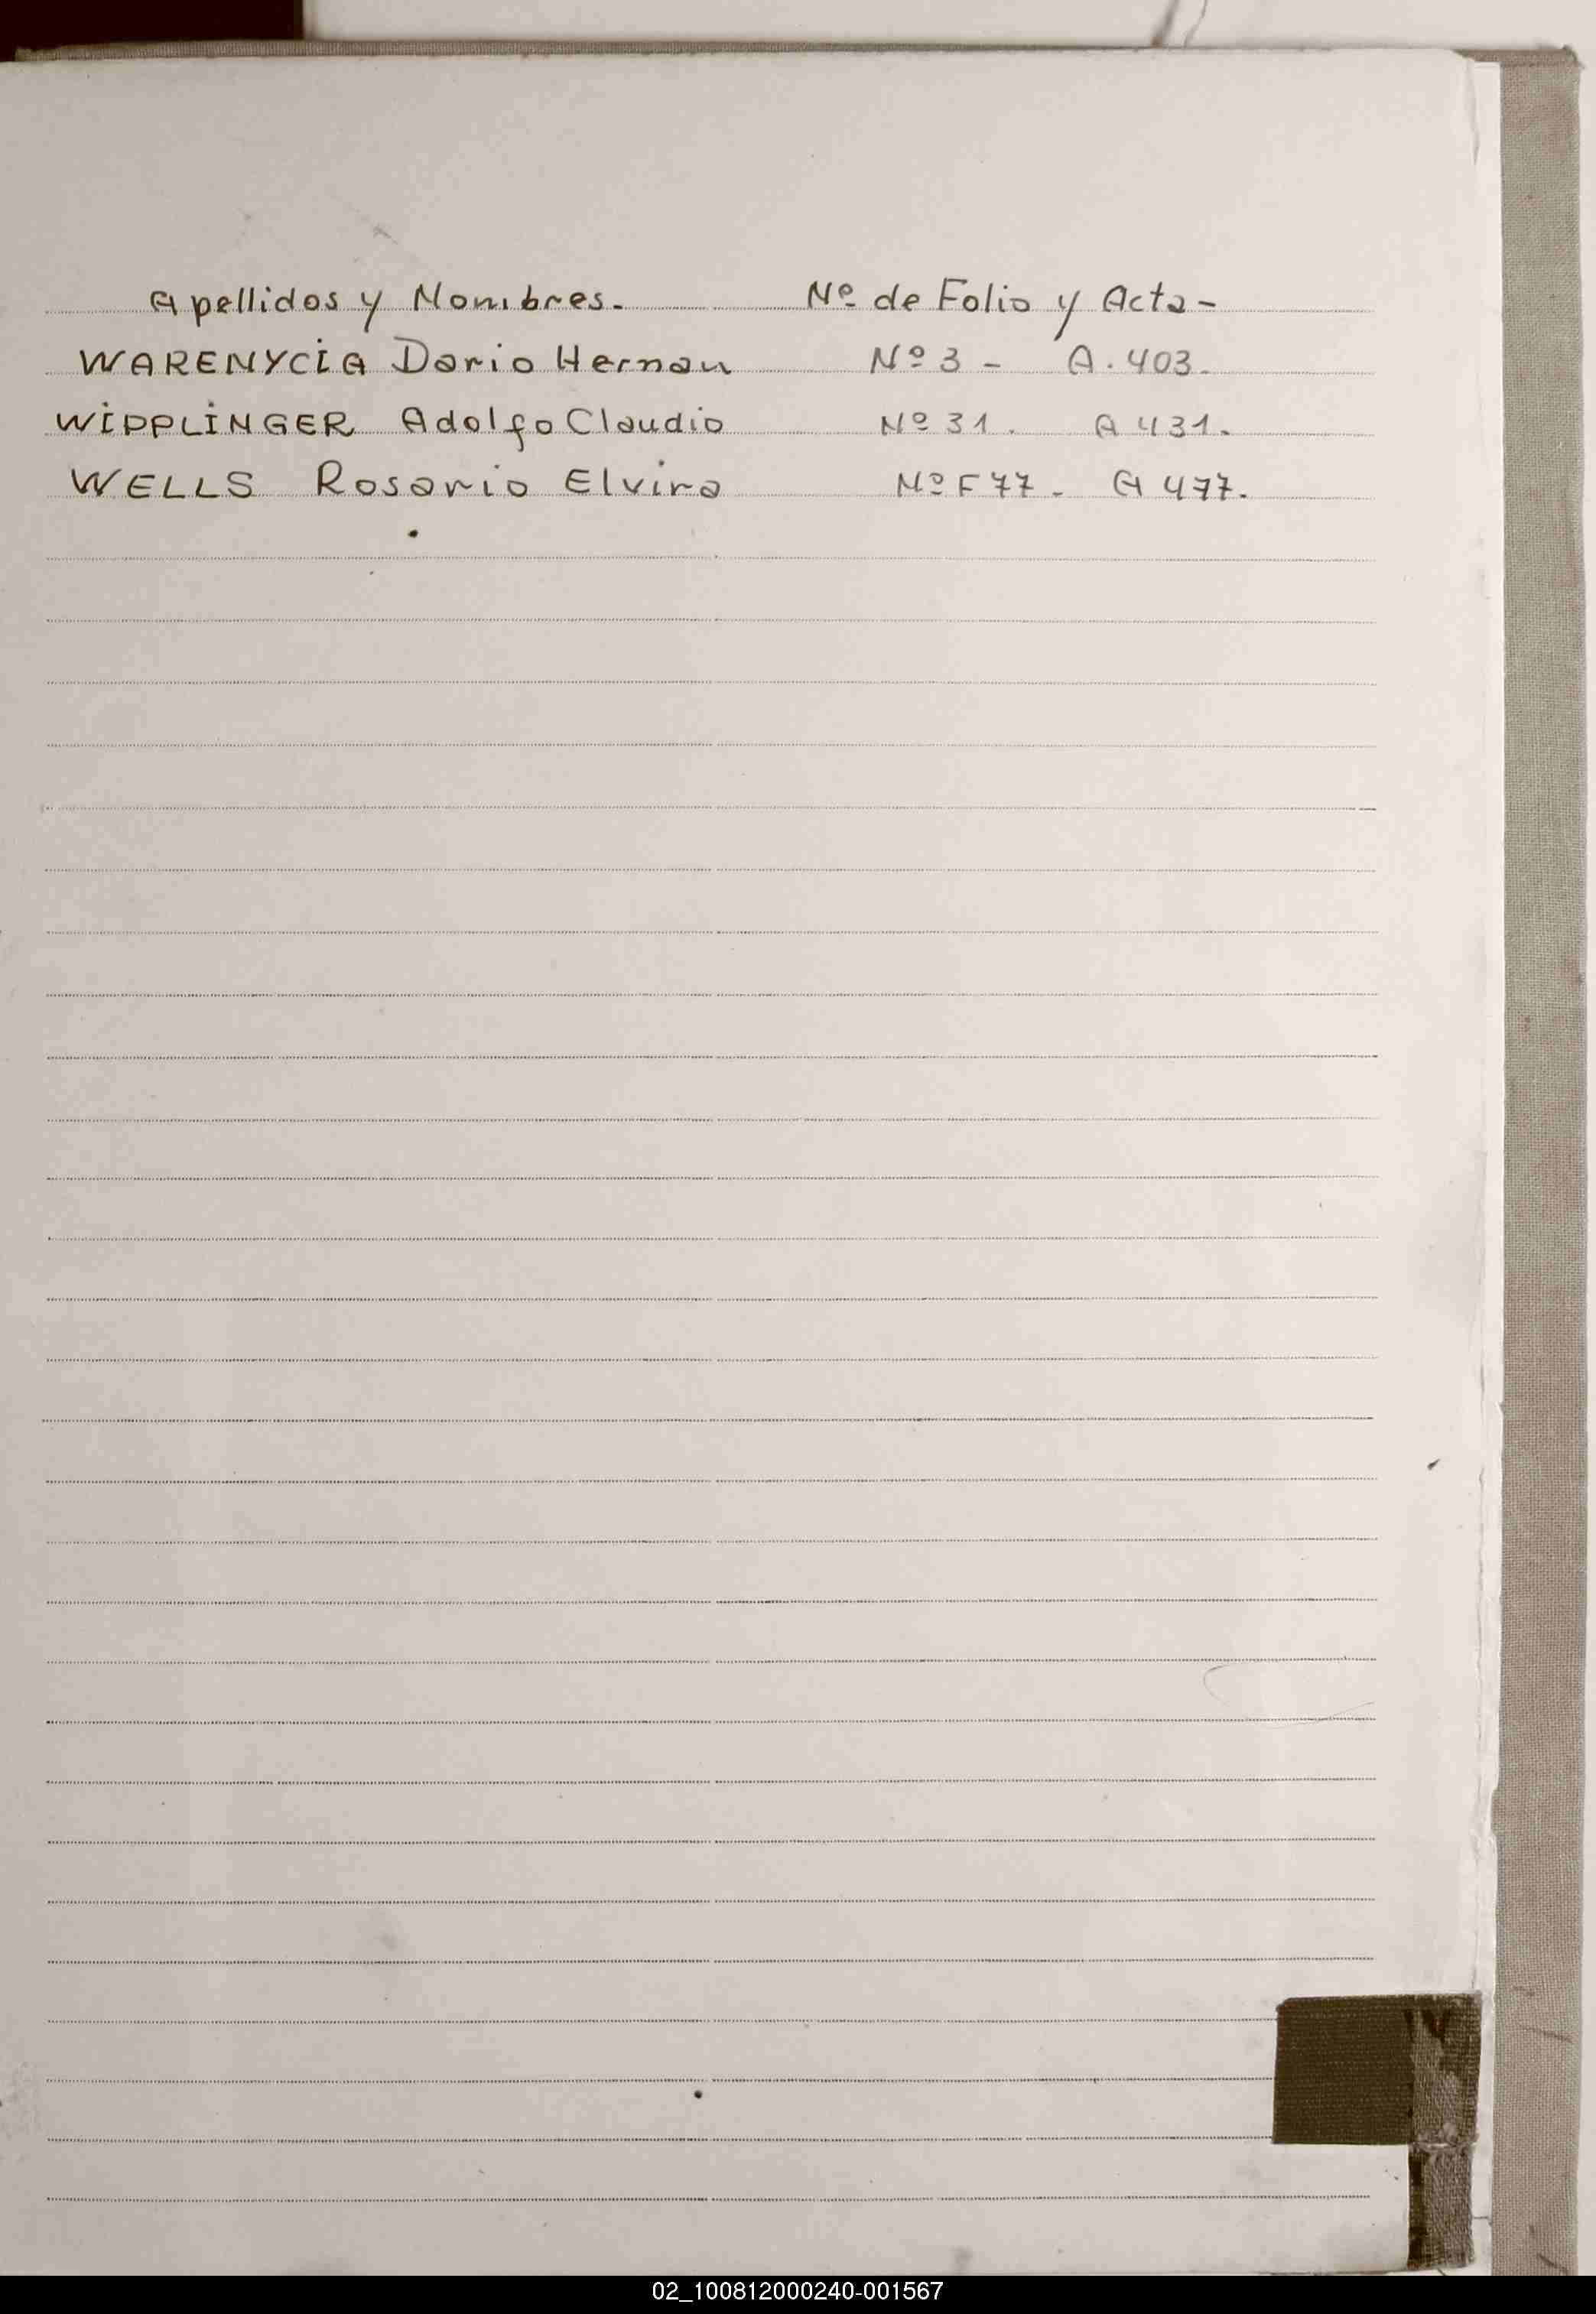 Apellidos y Nombres. Nº de Folio y Acta-
WARENYCIA Dario Hernan Nº 3 - A. 403.
WIPPLINGER Adolfo Claudio Nº 31. A 431.
WELLS Rosario Elvira Nº F 77. A 477.
02_100812000240-001567